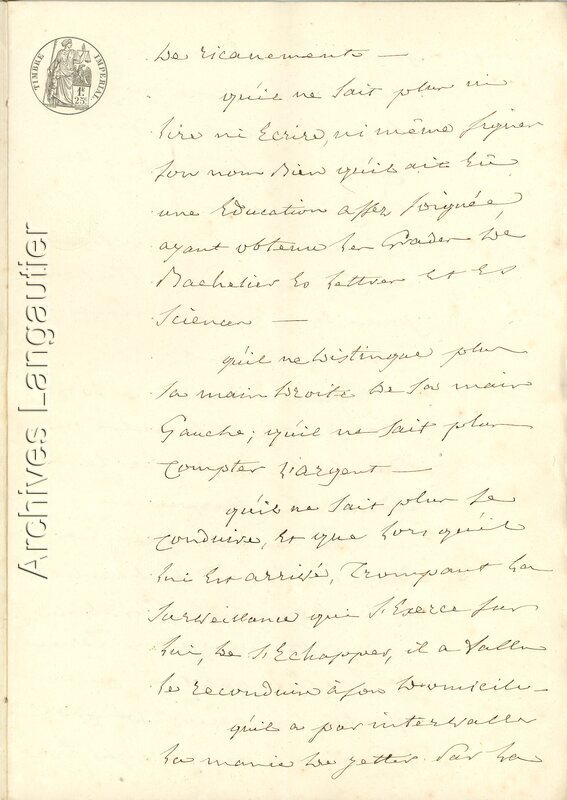 TIMBRE IMPERIAL
1F 25c
Archives Langautier
de ricanements —
qu'il ne sait plus ni
lire ni Ecrire, ni même signer
son nom Bien qu'il ait Eû
une Education assez soignée,
ayant obtenu les Grades de
Bachelier Es lettres et Es
Sciences —
qu'il ne Distingue plus
sa main droite de sa main
Gauche; qu'il ne sait plus
Compter l'argent —
qu'il ne sait plus se
conduire, Et que lors qu'il
lui Est arrivé, Trompant la
Surveillance qui s'Exerce sur
lui, de s'Echapper, il a fallu
le reconduire à son Domicile —
qu'il a par intervalles
la manie de jetter par la